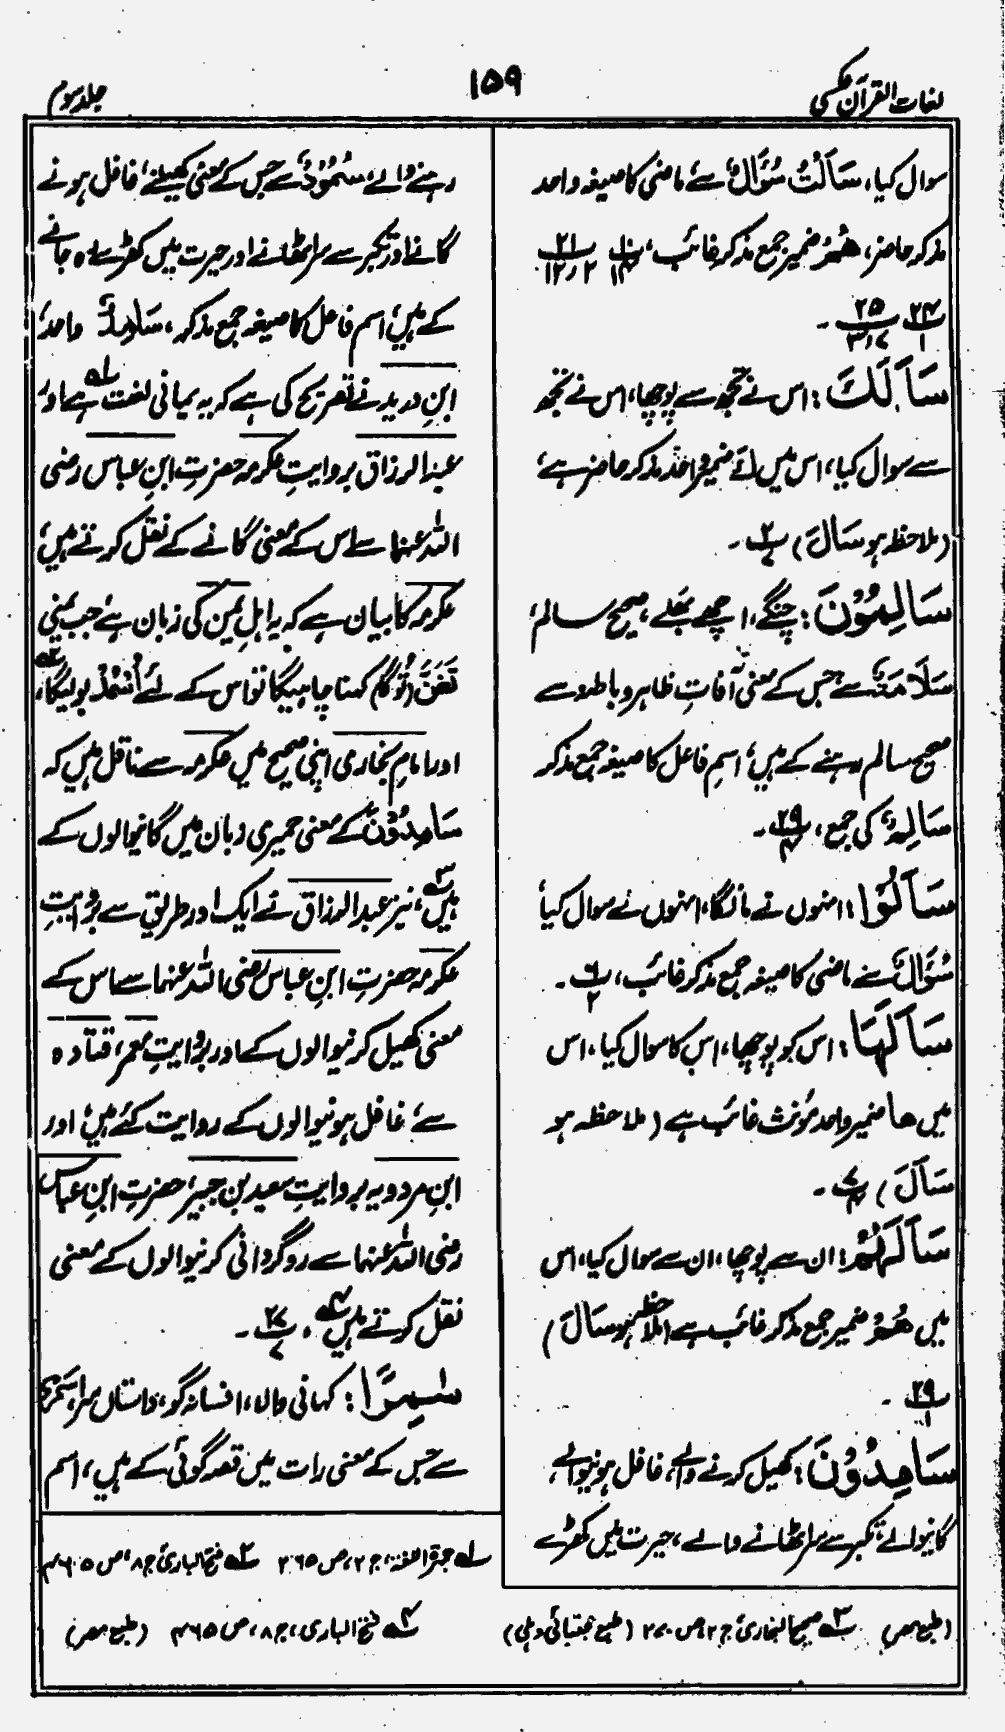 لغات القرآن عکسی
۱۵۹
جلد سوم
سوال کیا، سَأَلْتُ سُؤَالٌ سے ماضی کا صیغہ واحد
مذکر حاضر، هُمْ ضمیر جمع مذکر غائب،
۲۴ ۲۵
سَأَلَكَ : اس نے تجھ سے پوچھا، اس نے تجھ
سے سوال کیا، اس میں كَ ضمیر واحد مذکر حاضر ہے،
(ملاحظہ ہو سَأَلَ) پ۲ ۔
سَالِمُوْنَ : چنگے، اچھے بھلے، صحیح سالم،
سَلَامَةٌ سے جس کے معنی آفاتِ ظاہر و باطنہ سے
صحیح سالم رہنے کے ہیں، اسمِ فاعل کا صیغہ جمع مذکر
سَالِمٌ کی جمع، پ۲۹ ۔
سَأَلُوْا : انہوں نے مانگا، انہوں نے سوال کیا،
سُؤَالٌ سے ماضی کا صیغہ جمع مذکر غائب، پ۶ ۔
سَأَلَهَا : اس کو پوچھا، اس کا سوال کیا، اس
میں ها ضمیر واحد مؤنث غائب ہے (ملاحظہ ہو
سَأَلَ) پ۷ ۔
سَأَلَهُمْ : ان سے پوچھا، ان سے سوال کیا، اس
میں هُمْ ضمیر جمع مذکر غائب ہے (ملاحظہ ہو سَأَلَ)
پ۲۹ ۔
سَامِدُوْنَ : کھیل کرنے والے، غافل ہونیوالے،
گانیوالے، تکبر سے سر اٹھانے والے، حیرت میں کھڑے
رہنے والے، سُمُوْدٌ سے جس کے معنی کھیلنے، غافل ہونے
گانے اور تکبر سے سر اٹھانے اور حیرت میں کھڑے رہ جانے
کے ہیں، اسم فاعل کا صیغہ جمع مذکر، سَامِدٌ واحد،
ابنِ درید نے تصریح کی ہے کہ یہ یمانی لغت ہے لہ اور
عبد الرزاق بروایتِ عکرمہ حضرتِ ابنِ عباس رضی
اللہ عنہما سے اس کے معنی گانے کے نقل کرتے ہیں،
عکرمہ کا بیان ہے کہ یہ اہلِ یمن کی زبان ہے، جب یمنی
تَغَنَّ (تو گا) کہنا چاہیگا تو اس کے لئے اُسْمُدْ بولیگا، ۲ہ
اور امام بخاری اپنی صحیح میں عکرمہ سے ناقل ہیں کہ
سَامِدُوْنَ کے معنی حمیری زبان میں گانیوالوں کے
ہیں، ۳ہ نیز عبد الرزاق نے ایک اور طریق سے بروایتِ
عکرمہ حضرتِ ابنِ عباس رضی اللہ عنہما سے اس کے
معنی کھیل کرنیوالوں کے اور بروایتِ معمر، قتادہ
سے، غافل ہونیوالوں کے روایت کئے ہیں، اور
ابنِ مردویہ بروایتِ سعید بن جبیر، حضرتِ ابنِ عباس
رضی اللہ عنہما سے روگردانی کرنیوالوں کے معنی
نقل کرتے ہیں ۴ہ ، پ۲۷ ۔
سٰمِرًا : کہانی والا، افسانہ گو، داستاں سرا، سَمَرٌ
سے جس کے معنی رات میں قصہ گوئی کے ہیں، اسم
لہ جمہرۃ اللغۃ، ج ۲، ص ۲۶۵ ۲ہ فتح الباری، ج ۸، ص ۴۶۵
(طبع مصر) ۳ہ صحیح البخاری، ج ۲، ص ۷۲۰ (طبع مجتبائی دہلی) ۴ہ فتح الباری، ج ۸، ص ۴۶۵ (طبع مصر)